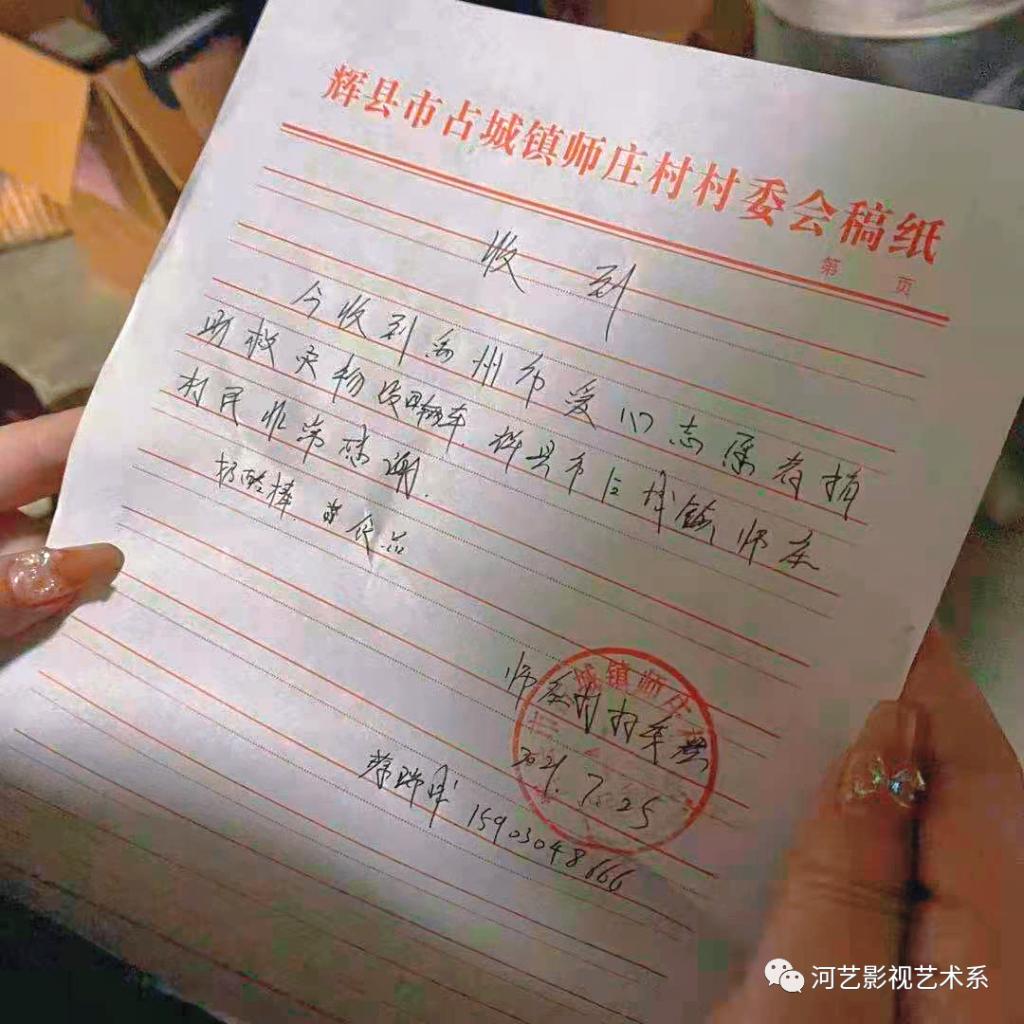 辉县市占城镇师庄村村委会稿纸
第 页
收到
今收到禹州市爱心志愿者捐
助救灾物资 车 辉县市占城镇师庄
村民非常感谢.
奶酪棒. 食品
城镇师庄
师庄村村委会
2021.7.25
15903048666
河艺影视艺术系